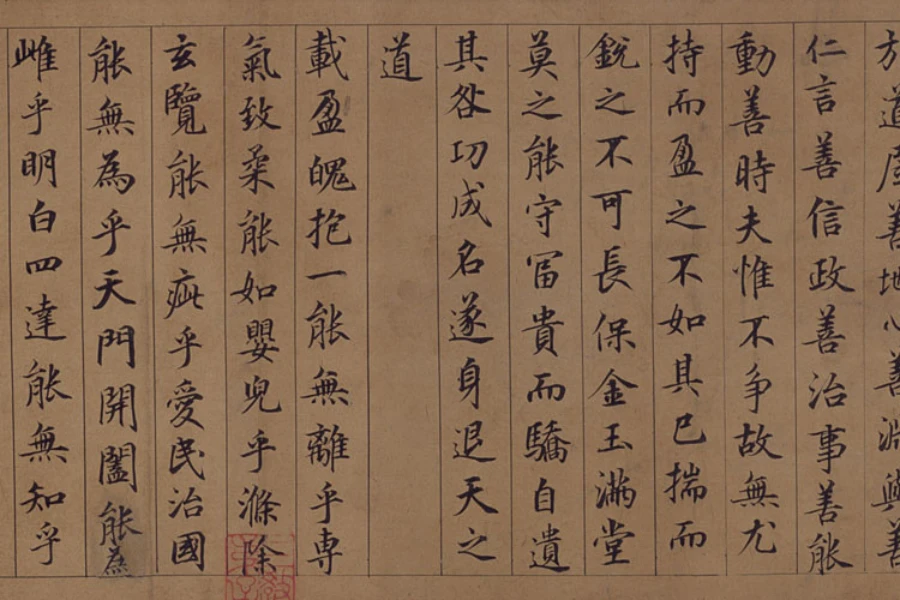 於道居善地心善淵與善
仁言善信政善治事善能
動善時夫惟不争故無尤
持而盈之不如其已揣而
銳之不可長保金玉滿堂
莫之能守冨貴而驕自遺
其咎功成名遂身退天之
道
載盈魄抱一能無離乎専
氣致柔能如嬰兒乎滌除
玄覽能無疵乎愛民治國
能無為乎天門開闔能為
雌乎明白四達能無知乎